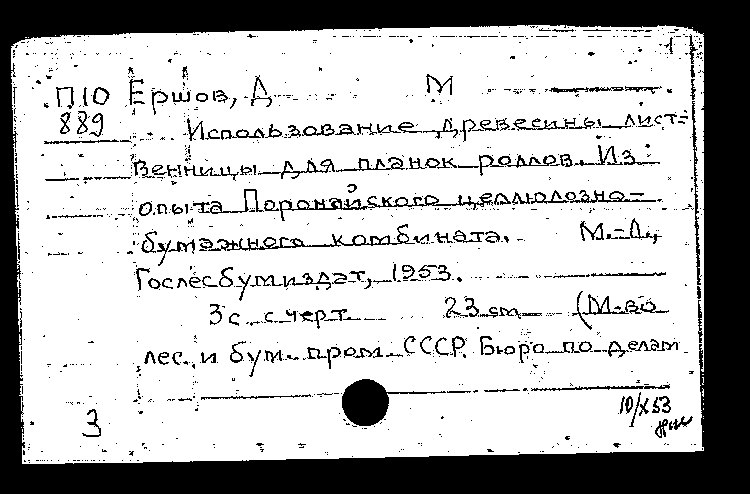 П10 Ершов, Д М
889 Использование древесины лист-
венницы для планок роллов. Из
опыта Поронайского целлюлозно-
бумажного комбината. М.-Л.,
Гослесбумиздат, 1953.
3 с. с черт. 23 см (М-во
лес. и бум. пром. СССР. Бюро по делам
3
10/X 53